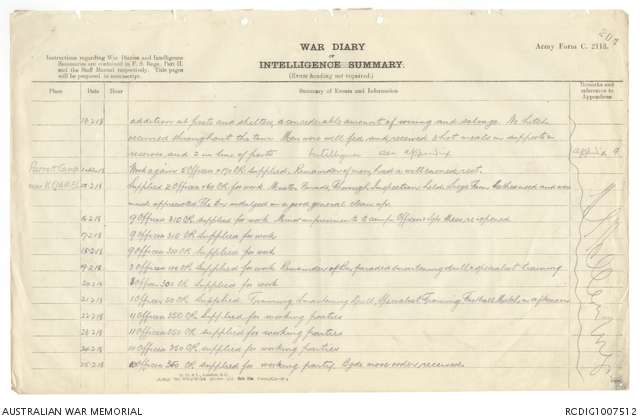 207
WAR DIARY
or
INTELLIGENCE SUMMARY.
(Erase heading not required.)
Army Form C. 2118.
Instructions regarding War Diaries and Intelligence
Summaries are contained in F. S. Regs., Part II.
and the Staff Manual respectively. Title pages
will be prepared in manuscript.
Place Date Hour Summary of Events and Information Remarks and references to Appendices
13-2-18 addition of posts and shelters, a considerable amount of wiring and salvage. No hitch
occurred throughout the tour. Men were well fed and received 3 hot meals in supports &
reserves and 2 in line of posts Intelligence see appendix appendix 9.
Parrot Camp Work again 5 Officers OR supplied. Remainder of men had a well earned rest.
Supplied 2 Officers OR for work. Muster Parade Thorough Inspection held. Large Farm and was
much appreciated The Bn indulged in a good general clean up.
16-2-18 9 Officers 310 OR supplied for work. Minor improvements to camp. Officers & Sgts Mess re-opened
17-2-18 9 Officers 310 OR supplied for work
18-2-18 9 Officers 310 OR supplied for work
19-2-18 Officers OR supplied for work Remainder of Bn paraded smartening drill & specialist training
20-2-18 Officers 300 OR supplied for work
21-2-18 1 Officer 50 OR supplied. Training Smartening Drill, Specialist Training Football Match in afternoon
22-2-18 11 Officers 350 OR supplied for working parties
23-2-18 11 Officers 350 OR supplied for working parties
24-2-18 10 Officers 350 OR supplied for working parties
25-2-18 Officers 350 OR supplied for working parties. Bgde move orders received.
AUSTRALIAN WAR MEMORIAL
RCDIG1007512